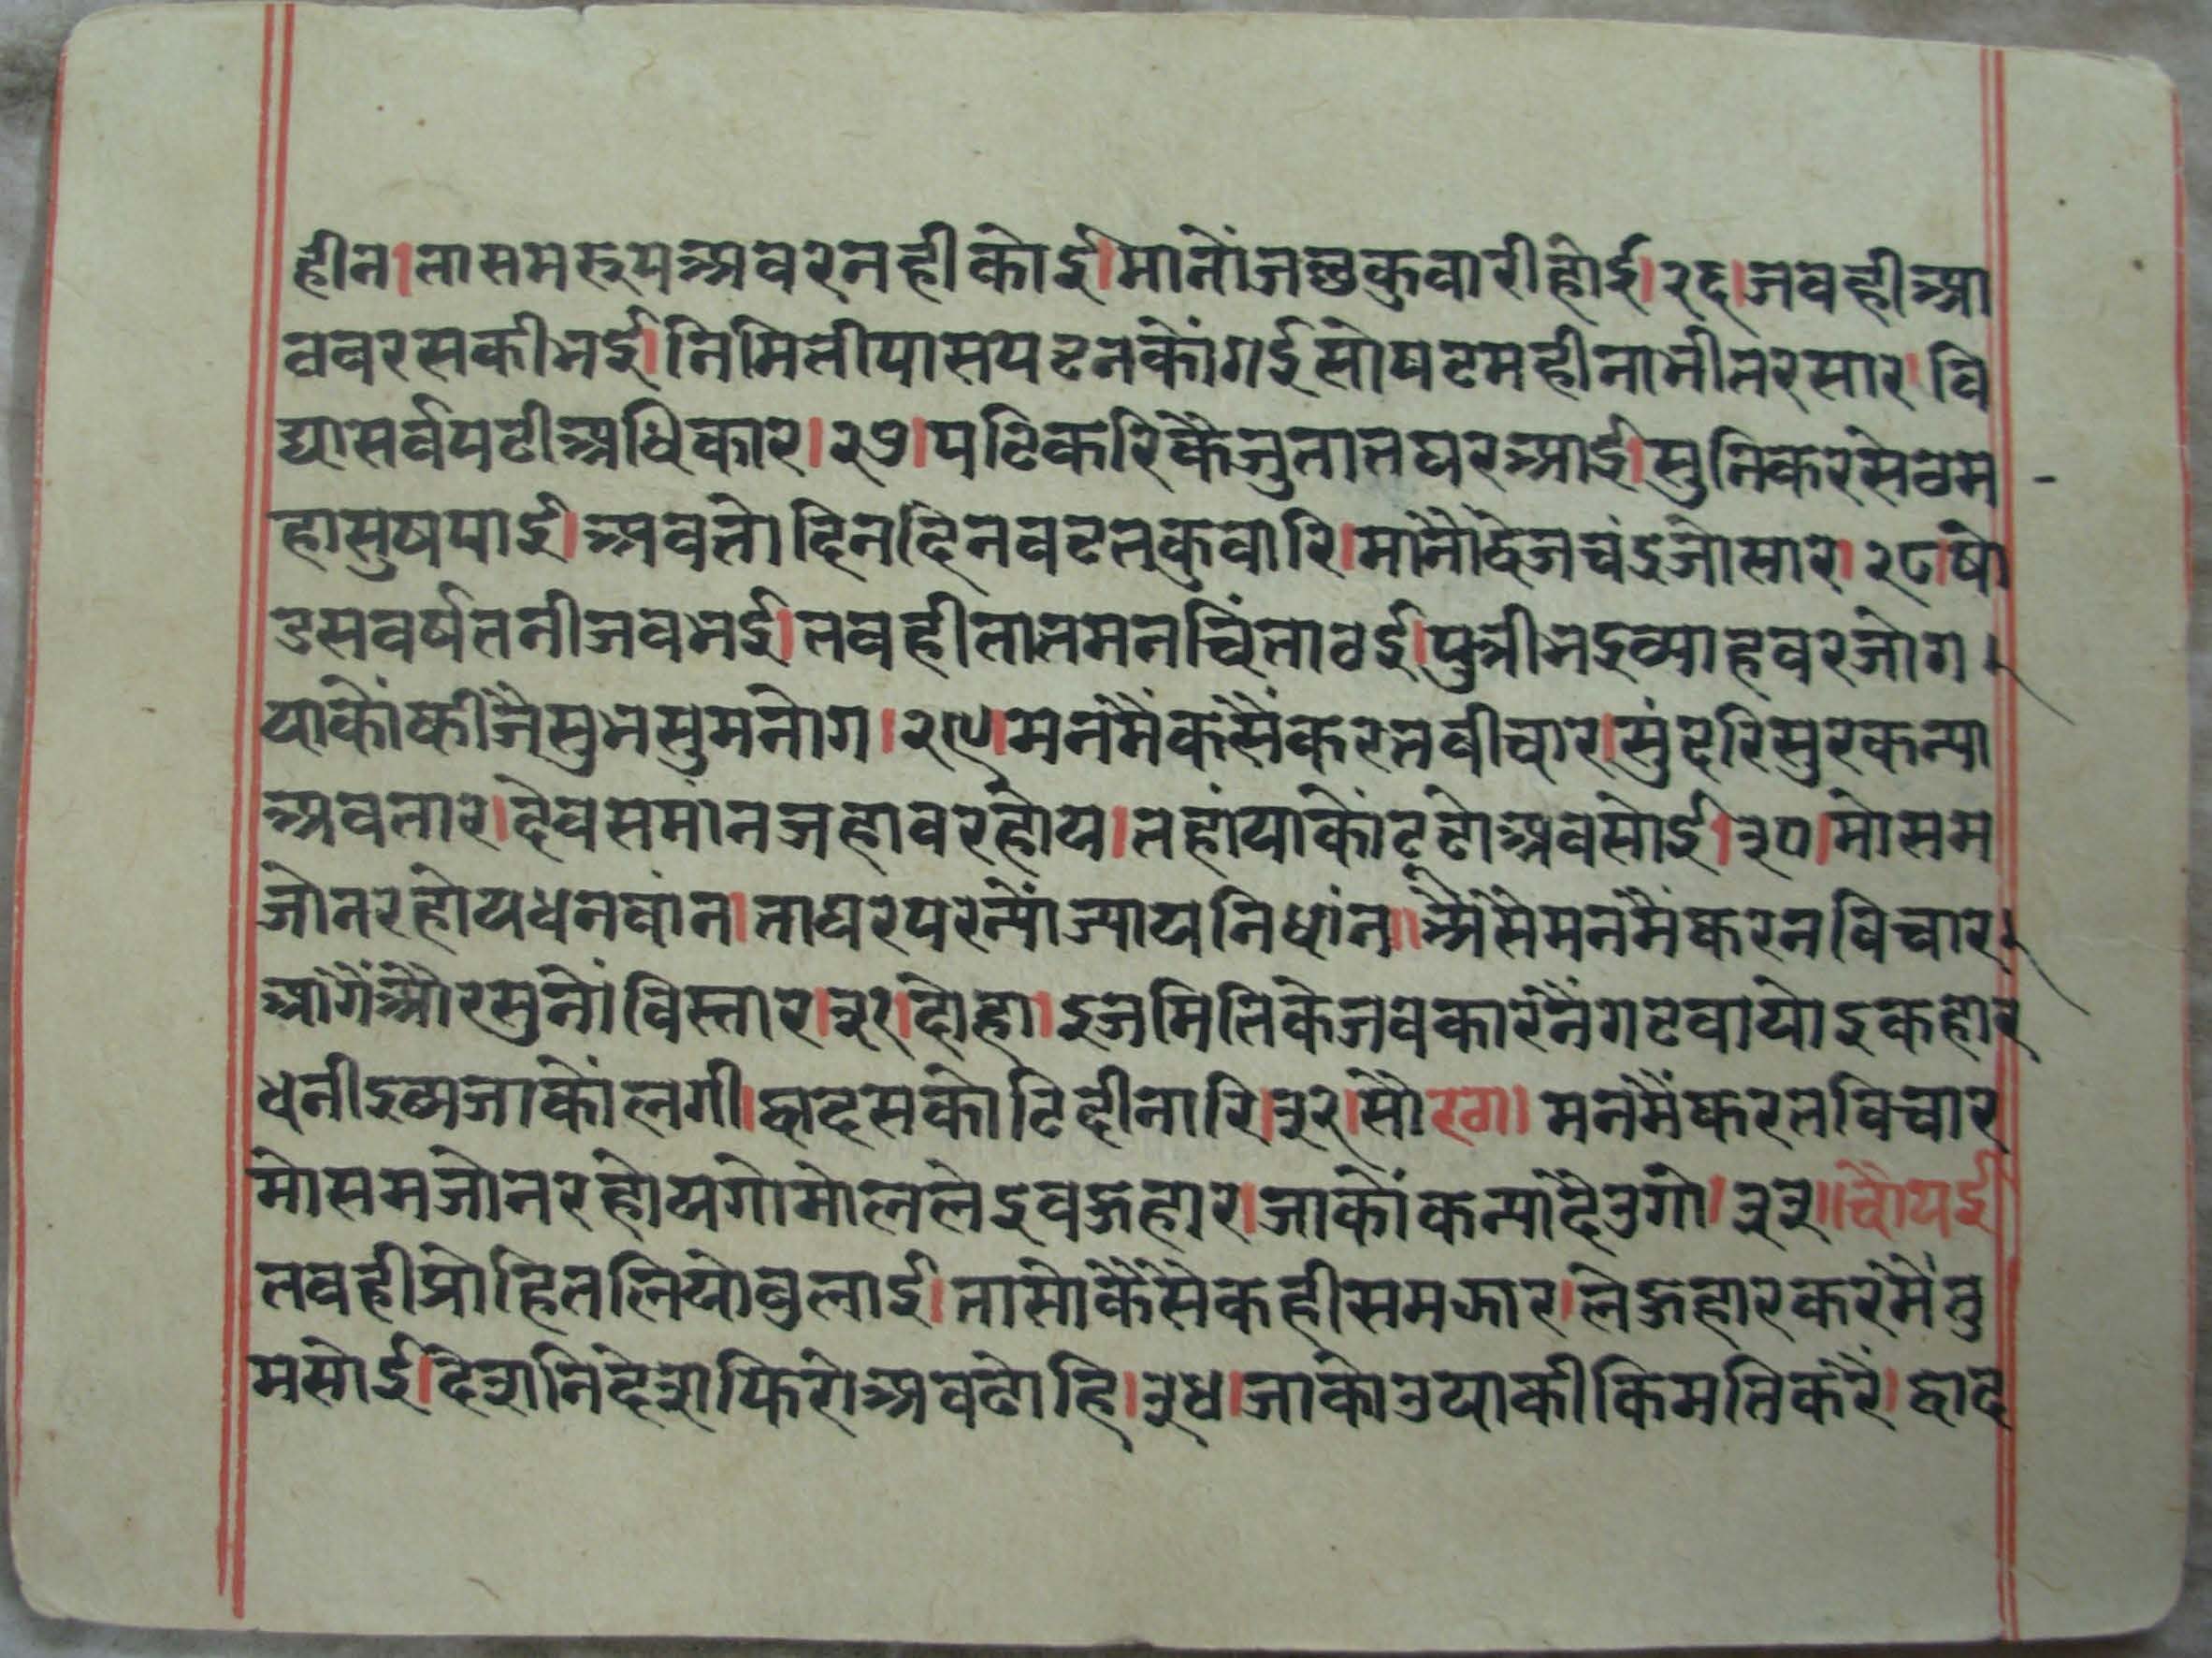 हीन।तासमरूपअवरनहीकोई।मानोंजछकुवारीहोई।२६।जवहीआ
ववरसकीभई।निमितीपासपढनकोंगईसोषटमहीनाभीतरसार।वि
द्यासर्वपढीअधिकार।२७।पढिकरिकैजुतातघरआई।सुनिकरसेठम
हासुषपाई।अवतोदिनदिनवढतकुवारि।मांनौंदेजचंद्रजोसार।२८।षो
डसवर्षतनीजवभई।तवहीतातमनचिंताठई।पुत्रीभइव्याहवरजोग।
याकोंकीजैसुभसुमनोग।२९।मनमैंकैसैंकरतवीचार।सुंदरिसुरकन्या
अवतार।देवसमांनजहावरहोय।तहांयाकोंढूढोअवसोई।३०।मोसम
जोनरहोयधनवांन।ताघरपरन्यौंज्यायनिधांन॥अैसैमनमैंकरतविचार।
आगैंऔरसुनोंविस्तार।३१।दोहा।इजमितिकेजवकारनैंगढवायोइकहार
धनीद्रव्यजाकोंलगी।द्वादसकोटिदीनारि।३२।सोरठा।मनमैंकरतविचार
मोसमजोनरहोयगोमोलले‍इवऊहार।जाकोंकन्यांदैउगो।३३॥चौपई
तवहीप्रोहितलियोवुलाई।तासोकैसैकहीसमझार।लेऊहारकरमैंतु
मसोई।देशनिदेशफिरोअवढोहि।३४।जाकोउयाकीकिमतिकरैं।द्वाद